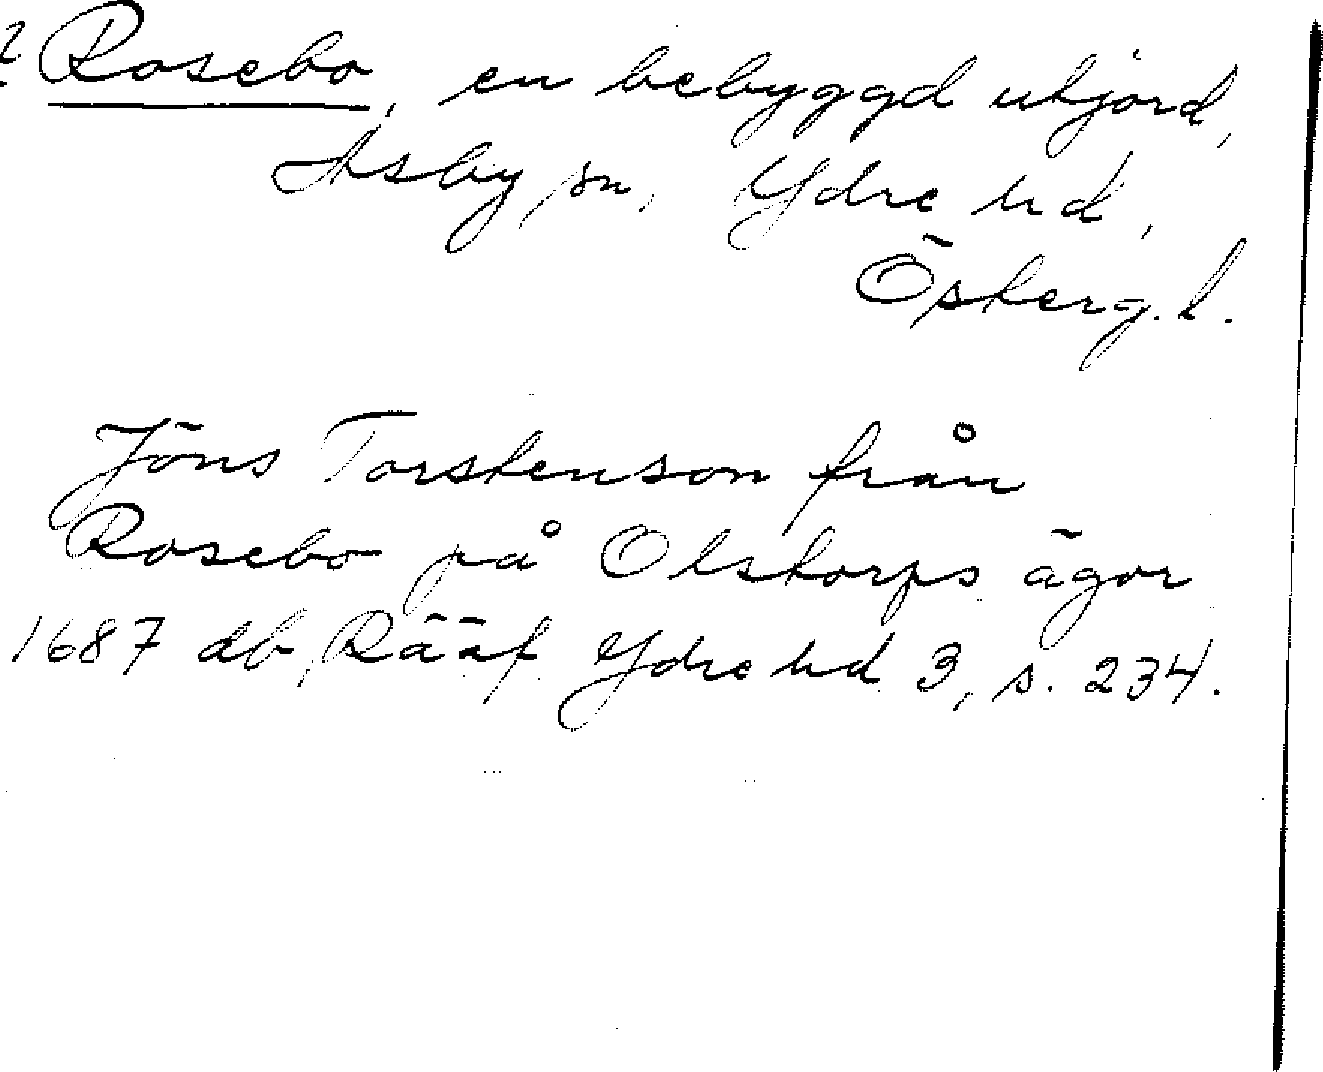 2 Rosebo, en bebyggd utjord,
Asby sn, Ydre hd,
Österg. l.
Jöns Torstenson från
Rosebo på Olstorps ägor
1687 db, Rääf Ydre hd 3, s. 234.